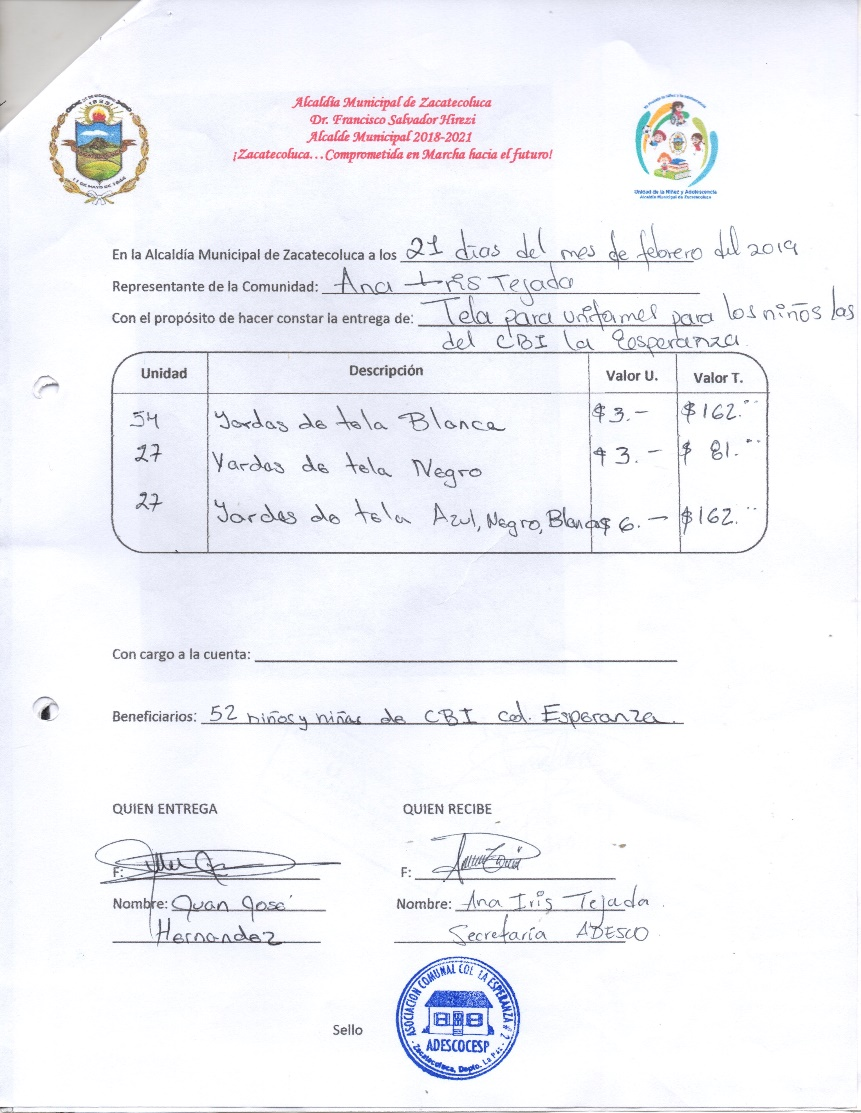 Alcaldía Municipal de Zacatecoluca
Dr. Francisco Salvador Hirezi
Alcalde Municipal 2018-2021
¡Zacatecoluca…Comprometida en Marcha hacia el futuro!
1823
Unidad de la Niñez y Adolescencia
Alcaldía Municipal de Zacatecoluca
En la Alcaldía Municipal de Zacatecoluca a los 21 dias del mes de febrero del 2019
Representante de la Comunidad: Ana Iris Tejada
Con el propósito de hacer constar la entrega de: Tela para uniformes para los niños las
del CBI la Esperanza.
Unidad Descripción Valor U. Valor T.
54 Yardas de tela Blanca $ 3.- $162.
27 Yardas de tela Negro $ 3.- $ 81.
27 Yardas de tela Azul, Negro, Blanca $ 6.- $162.
Con cargo a la cuenta:
Beneficiarios: 52 niños y niñas de CBI col. Esperanza.
QUIEN ENTREGA QUIEN RECIBE
F: F:
Nombre: Juan José Nombre: Ana Iris Tejada.
Hernandez Secretaría ADESCO
Sello
ASOCIACIÓN COMUNAL COL. LA ESPERANZA # 2
ADESCOCESP
Zacatecoluca, Depto. La Paz